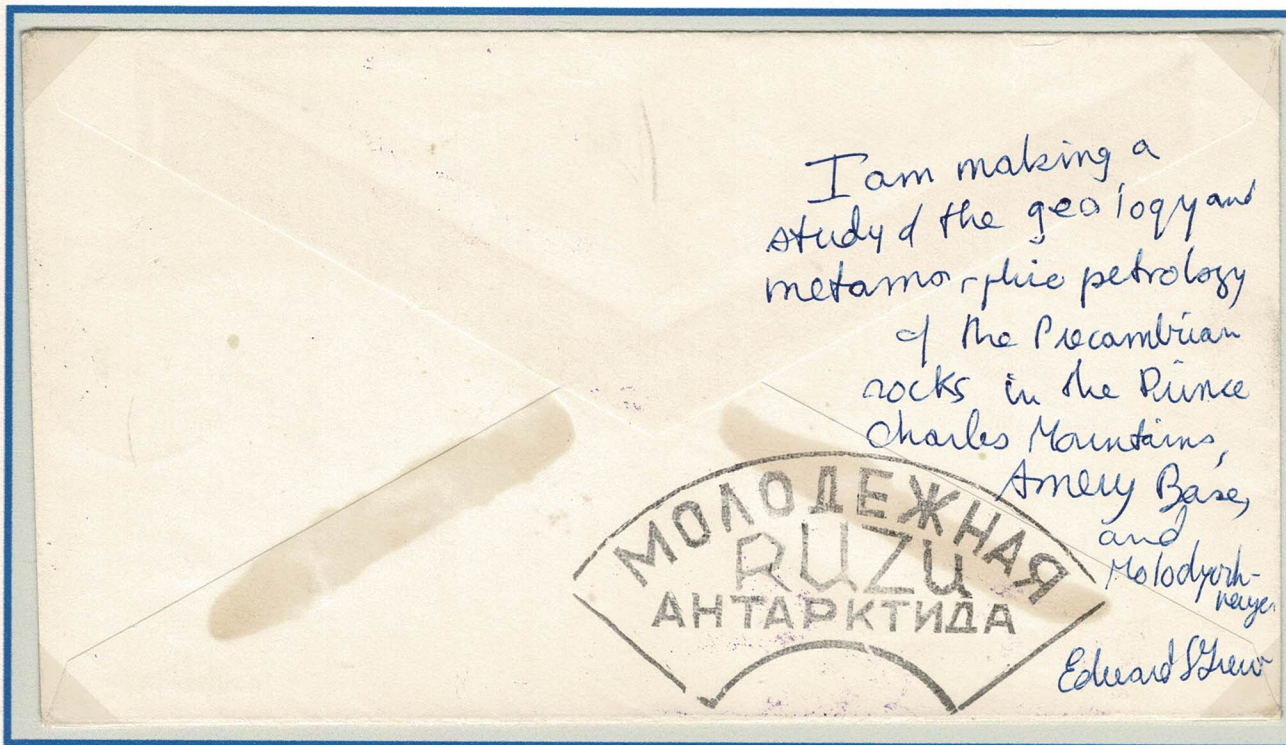 I am making a
study of the geology and
metamorphic petrology
of the Precambrian
rocks in the Prince
Charles Mountains,
Amery Base,
and
Molodyozh-
naya
Edward S Grew
МОЛОДЕЖНАЯ
RUZU
АНТАРКТИДА